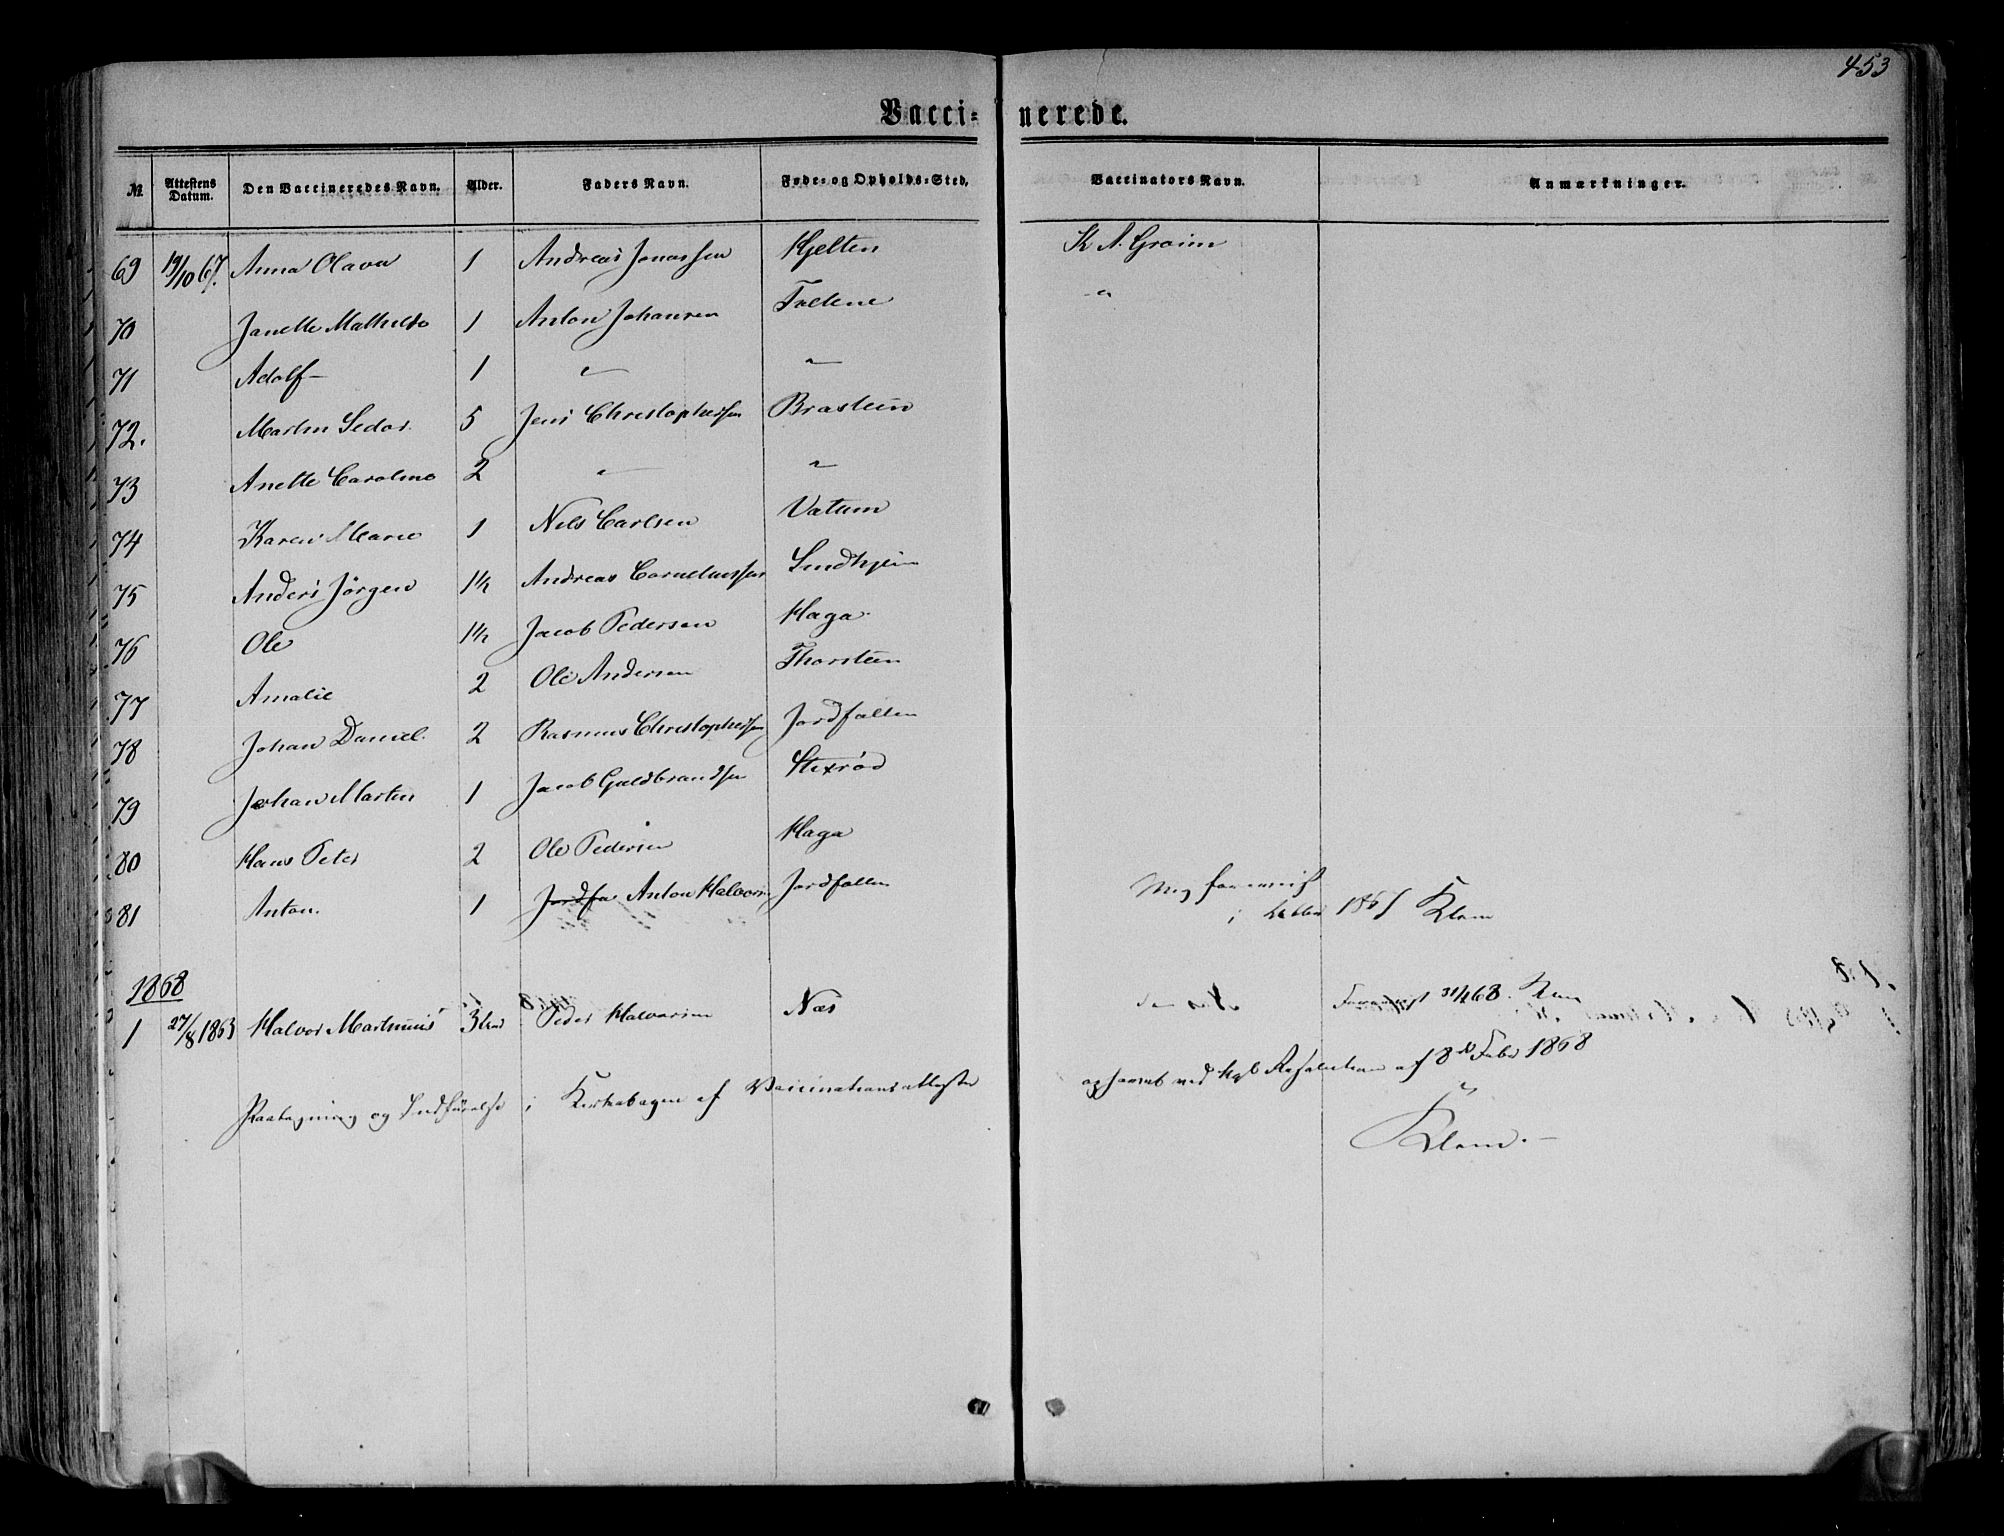 453
Vaccinerede.
№ Attestens Datum. Den Vaccineredes Navn. Alder. Faders Navn. Føde- og Opholds-Sted. Vaccinators Navn. Anmærkninger.
69 19/10 67. Anna Olava 1 Andreas Jonassen Kjelten K A. Graim
70 Janette Mathilde 1 Anton Johansen Tvetene "
71 Adolf 1 " "
72. Martin Sedor. 5 Jens Christophersen Brasteen
73 Anette Caroline 2 " "
74 Karen Marie 1 Nils Carlsen Vatum
75 Anders Jörgen 1½ Andreas Corneliussen Lindhjem
76 Ole 1½ Jacob Pedersen Haga
77 Amalie 2 Ole Andersen Thorsteen
78 Johan Daniel. 2 Rasmus Christophersen Jordfallen
79 Johan Martin 1 Jacob Guldbrandsen Hexrød
80 Hans Peter 2 Ole Pedersen Haga
81 Anton. 1 Jordfa Anton Halvorsen Jordfallen
i 1867 Klem
1868
1 27/8 1863 Halvor Martinius Peder Halvorsen Næs 31/1 68.
og Indførelse i Kirkebogen af Vaccinationsattester ophævet ved Kgl Resolution af 8de Febr 1868
Klem.